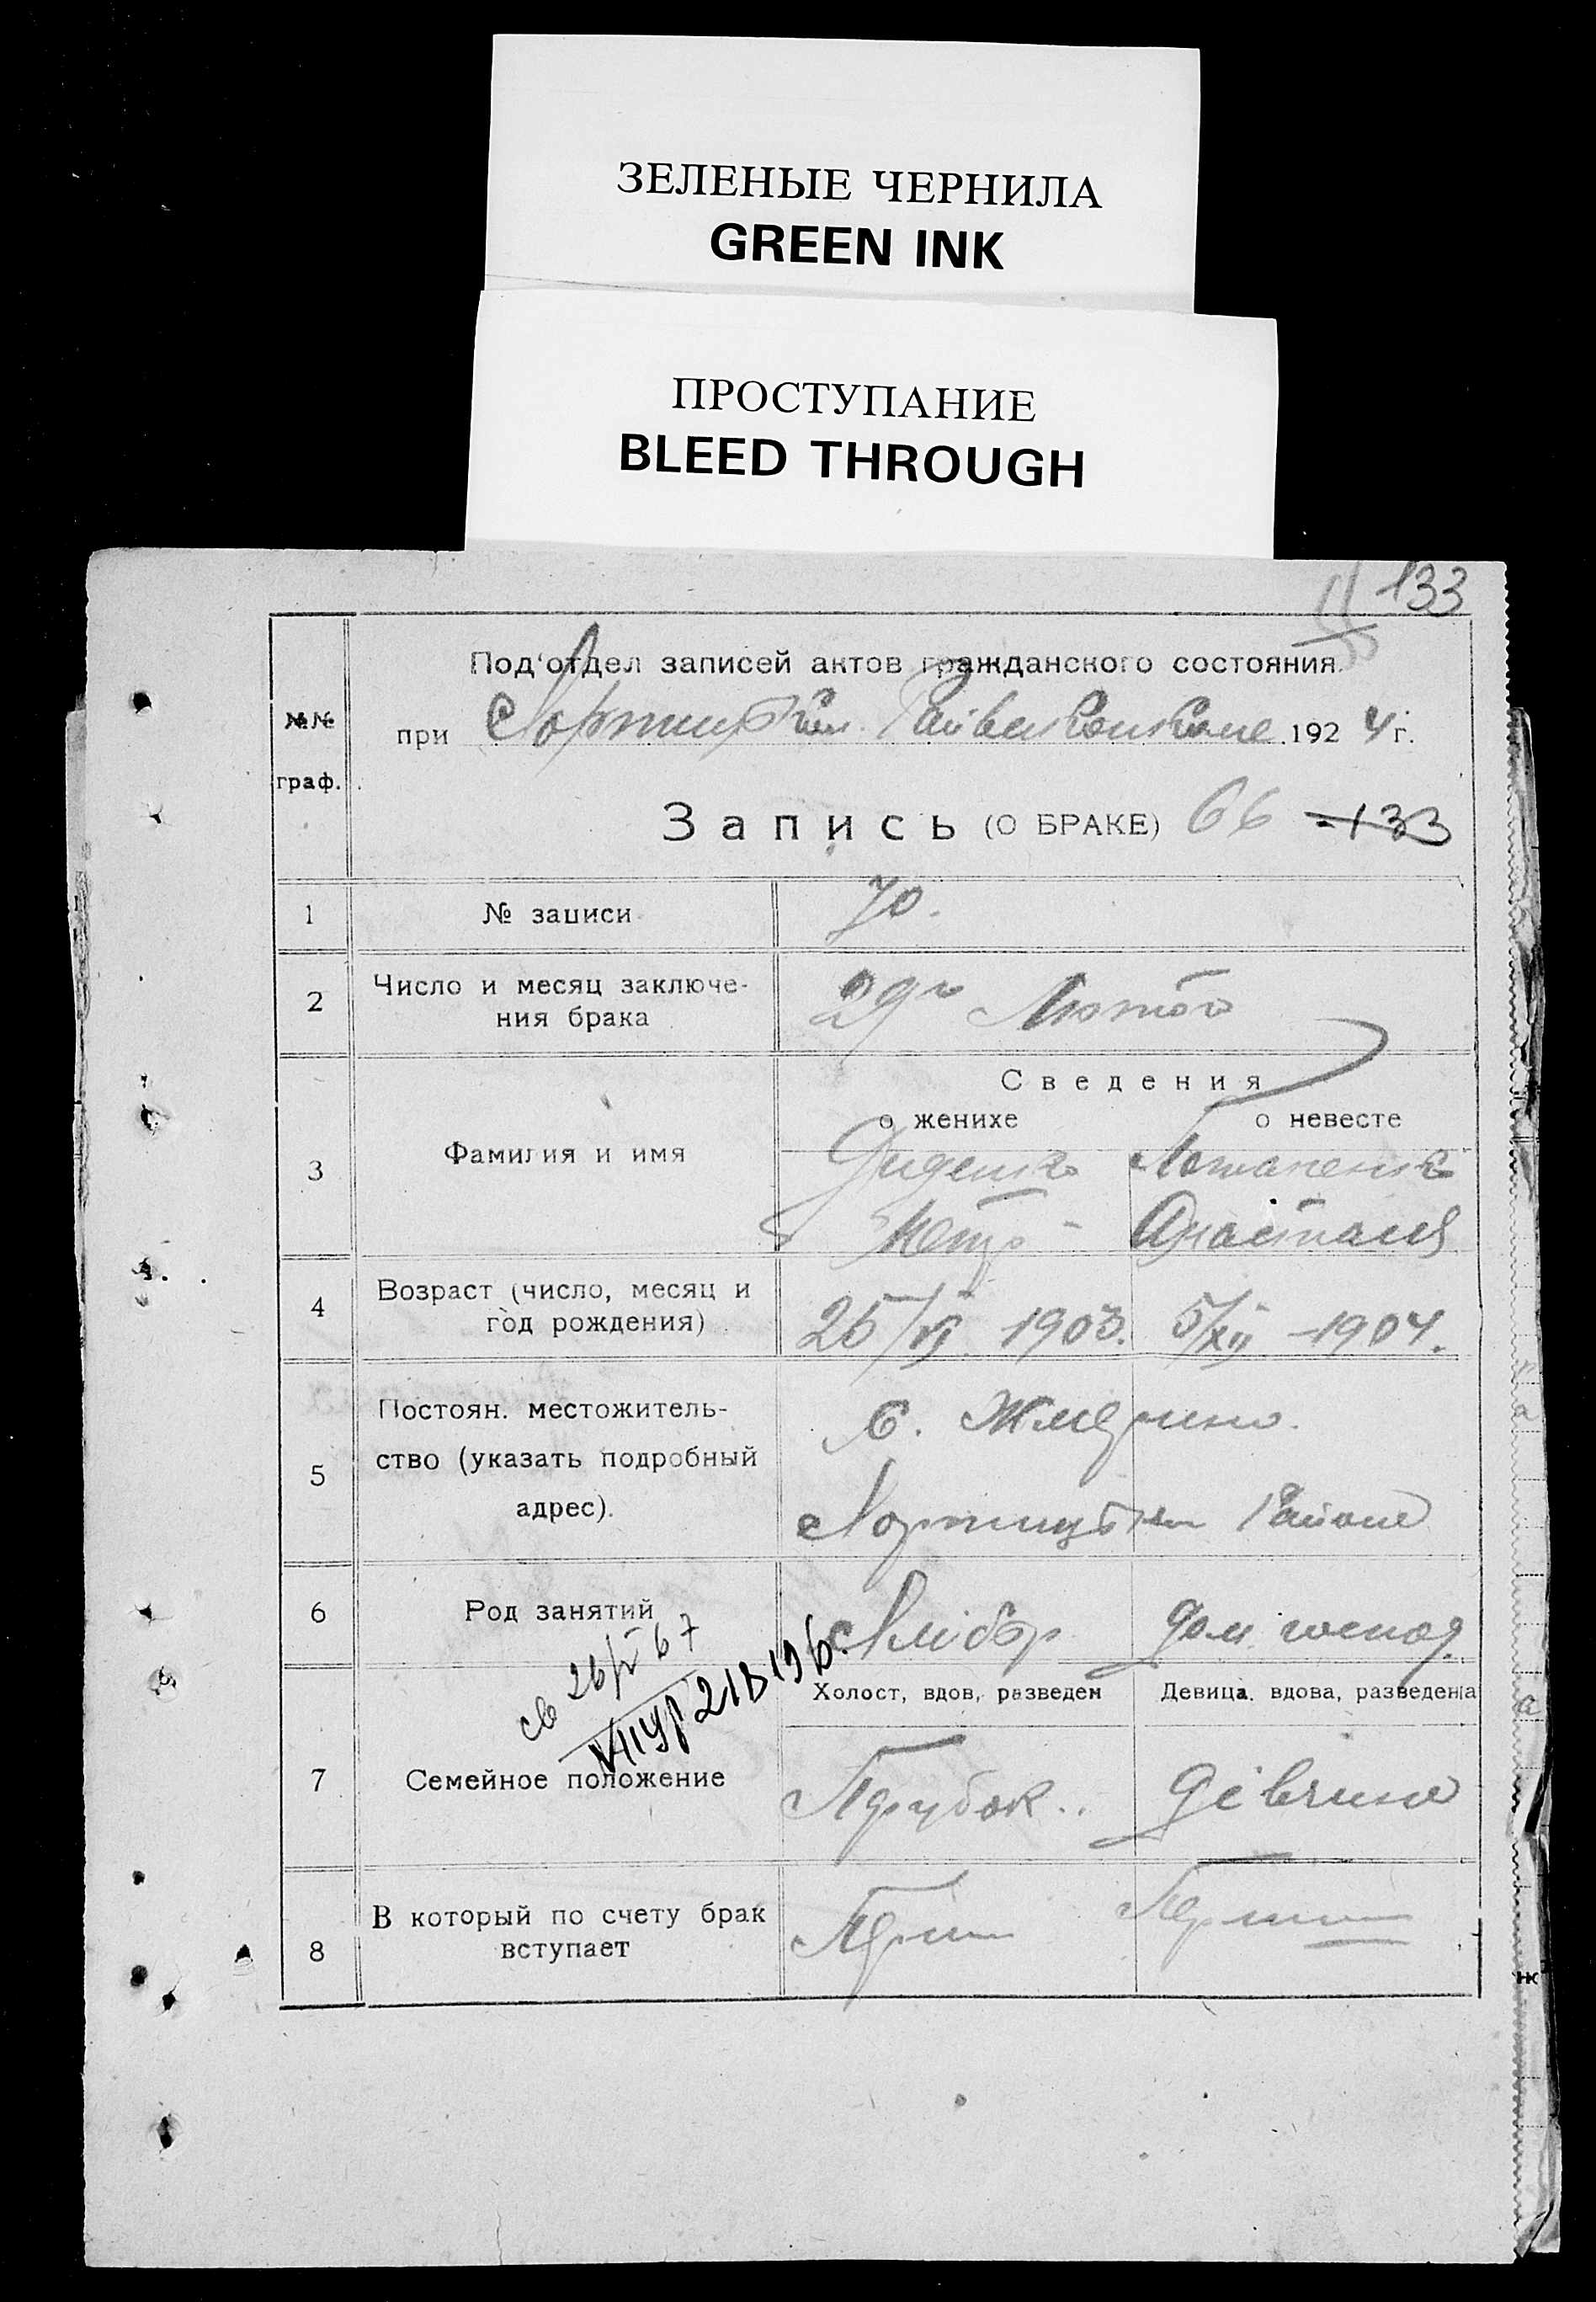 ЗЕЛЕНЫЕ ЧЕРНИЛА
GREEN INK
ПРОСТУПАНИЕ
BLEED THROUGH
133
Под'отдел записей актов гражданского состояния.
№№ граф.
при Райвиконкоме 1924 г.
Запись (О БРАКЕ) 66 133
1 № записи 70.
2 Число и месяц заключе-
ния брака
29го Лютого
Сведения
о женихе о невесте
3 Фамилия и имя
Диденко
Петро Анастасия
4 Возраст (число, месяц и
год рождения)
25/VI 1903. 5/XII -1904.
5 Постоян. местожитель-
ство (указать подробный
адрес).
с.
Району
6 Род занятий
Хлібор дом. господ.
Холост, вдов, разведен Девица, вдова, разведена
7 Семейное положение
Парубок. Дівчина
8 В который по счету брак
вступает
Перши Перши